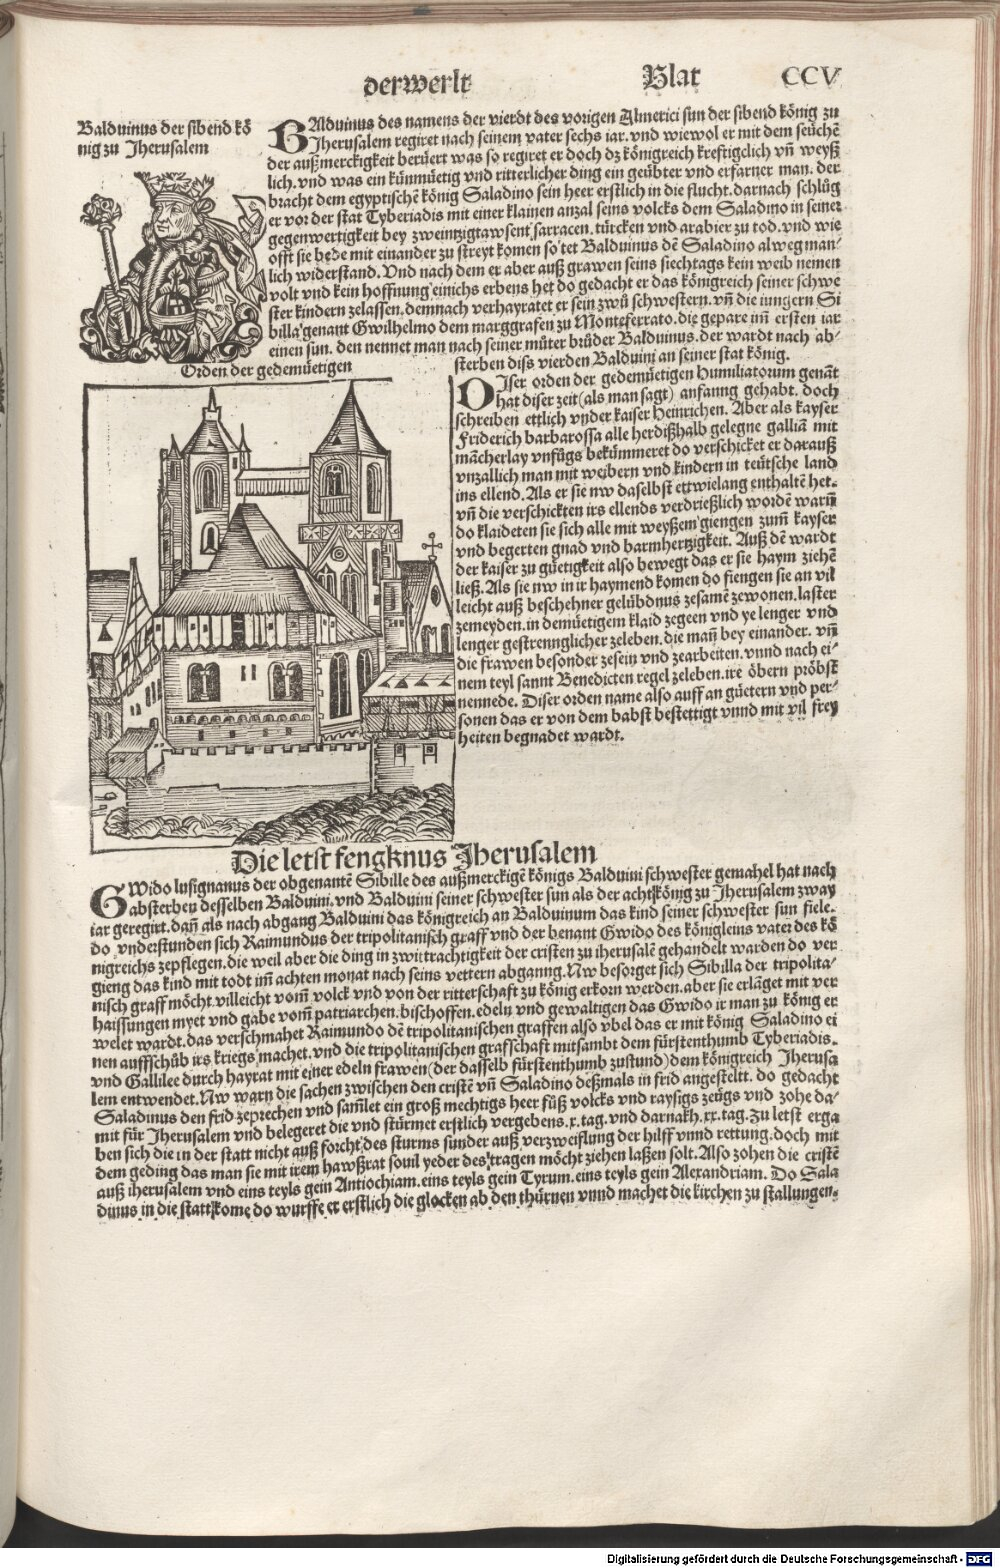 der werlt Blat CCV
Balduinus der sibend kö
nig zu Jherusalem
BAlduinus des namens der vierdt des vorigen Almerici sun der sibend könig zu
Jherusalem regiret nach seinem vater sechs iar. vnd wiewol er mit dem seüchē
der außmerckigkeit berüert was so regiret er doch dz königreich kreftigclich vñ weyß
lich. vnd was ein künmüetig vnd ritterlicher ding ein geübter vnd erfarner man. der
bracht dem egyptischē könig Saladino sein heer erstlich in die flucht. darnach schlüg
er vor der stat Tyberiadis mit einer klainen anzal seins volcks dem Saladino in seiner
gegenwertigkeit bey zweintzigtawsent sarracen. türcken vnd arabier zu tod. vnd wie
offt sie bede mit einander zu streyt komen so tet Balduinus dē Saladino alweg man-
lich widerstand. Vnd nach dem er aber auß grawen seins siechtags kein weib nemen
volt vnd kein hoffnung einichs erbens het do gedacht er das königreich seiner schwe
ster kindern zelassen. demnach verhayratet er sein zwu schwestern. vñ die iungern Si
billa genant Gwilhelmo dem marggrafen zu Monteferrato. die gepare im̄ ersten iar
einen sun. den nennet man nach seiner müter brüder Balduinus. der wardt nach ab-
sterben diss vierden Balduini an seiner stat könig.
Orden der gedemüetigen
DIser orden der gedemüetigen Humiliatorum genāt
hat diser zeit (als man sagt) anfanng gehabt. doch
schreiben ettlich vnder kaiser Heinrichen. Aber als kayser
Friderich barbarossa alle herdißhalb gelegne galliā mit
mācherlay vnfügs bekümmeret do verschicket er darauß
vnzallich man mit weibern vnd kindern in teütsche land
ins ellend. Als er sie nw daselbst ettwielang enthaltē het.
vñ die verschickten irs ellends verdrießlich wordē warn̄
do klaideten sie sich alle mit weyßem giengen zum̄ kayser
vnd begerten gnad vnd barmhertzigkeit. Auß dē wardt
der kaiser zu güetigkeit also bewegt das er sie haym ziehē
ließ. Als sie nw in ir haymend komen do fiengen sie an vil
leicht auß beschehner gelübdnus zesamē zewonen. laster
zemeyden. in demüetigem klaid zegeen vnd ye lenger vnd
lenger gestrennglicher zeleben. die man̄ bey einander. vñ
die frawen besonder zesein vnd zearbeiten. vnnd nach ei-
nem teyl sannt Benedicten regel zeleben. ire öbern pröbst
nennede. Diser orden name also auff an güetern vnd per-
sonen das er von dem babst bestettigt vnnd mit vil frey
heiten begnadet wardt.
Die letst fengknus Jherusalem
GWido lusignanus der obgenantē Sibille des außmerckigē königs Balduini schwester gemahel hat nach
absterben desselben Balduini. vnd Balduini seiner schwester sun als der acht könig zu Jherusalem zway
iar geregirt. dañ als nach abgang Balduini das königreich an Balduinum das kind seiner schwester sun fiele.
do vnderstunden sich Raimundus der tripolitanisch graff vnd der benant Gwido des königleins vater des kö
nigreichs zepflegen. die weil aber die ding in zwittrachtigkeit der cristen zu iherusalē gehandelt warden do ver
gieng das kind mit todt im̄ achten monat nach seins vettern abganng. Nw besorget sich Sibilla der tripolita-
nisch graff möcht villeicht vom̄ volck vnd von der ritterschaft zu könig erkorn werden. aber sie erlāget mit ver
haissungen myet vnd gabe vom̄ patriarchen. bischoffen. edeln vnd gewaltigen das Gwido ir man zu könig er
welet wardt. das verschmahet Raimundo dē tripolitanischen graffen also vbel das er mit könig Saladino ei
nen auffschüb irs kriegs machet. vnd die tripolitanischen grafschaft mitsambt dem fürstenthumb Tyberiadis.
vnd Gallilee durch hayrat mit einer edeln frawen (der dasselb fürstenthumb zustund) dem königreich Jherusa
lem entwendet. Nw warn die sachen zwischen den cristē vñ Saladino deßmals in frid angestelt. do gedacht
Saladinus den frid zeprechen vnd sam̄let ein groß mechtigs heer füß volcks vnd raysigs zeügs vnd zohe da-
mit für Jherusalem vnd belegeret die vnd stürmet erstlich vergebens. x. tag. vnd darnakh. xx. tag. Zu letst erga
ben sich die in der statt nicht auß forcht des sturms sunder auß verzweiflung der hilff vnnd rettung. doch mit
dem geding das man sie mit irem hawßrat souil yeder des tragen möcht ziehen laßen solt. Also zohen die cristē
auß iherusalem vnd eins teyls gein Antiochiam. eins teyls gein Tyrum. eins teyls gein Alexandriam. Do Sala
dinus in die statt kome do wurffe er erstlich die glocken ab den thürnen vnnd machet die kirchen zu stallungen.
Digitalisierung gefördert durch die Deutsche Forschungsgemeinschaft - DFG